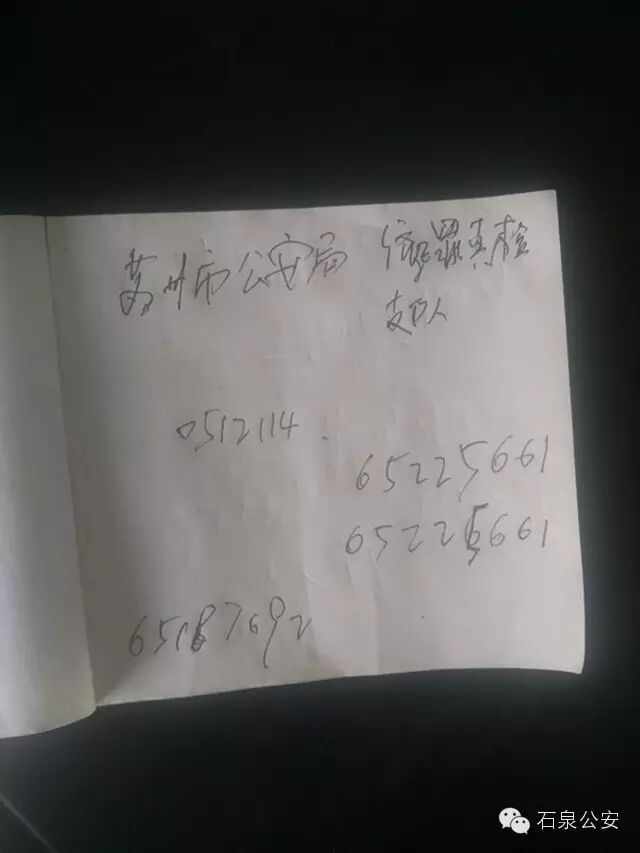 苏州市公安局 侦罪真检
支队
0512114.
65225661
65225661
65187692
石泉公安